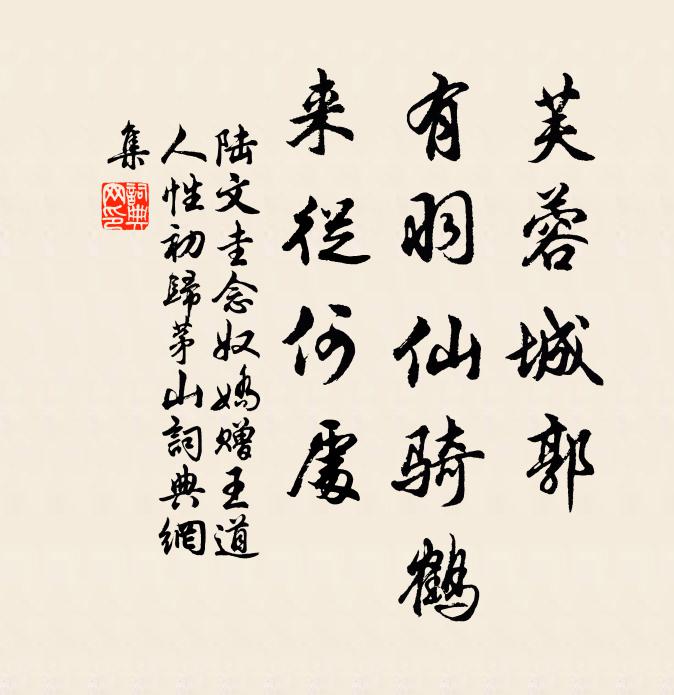 芙蓉城郭
有羽仙骑鹤
来從何處
陆文圭念奴嬌赠王道
人性初歸茅山詞典網
集
詞典
网印